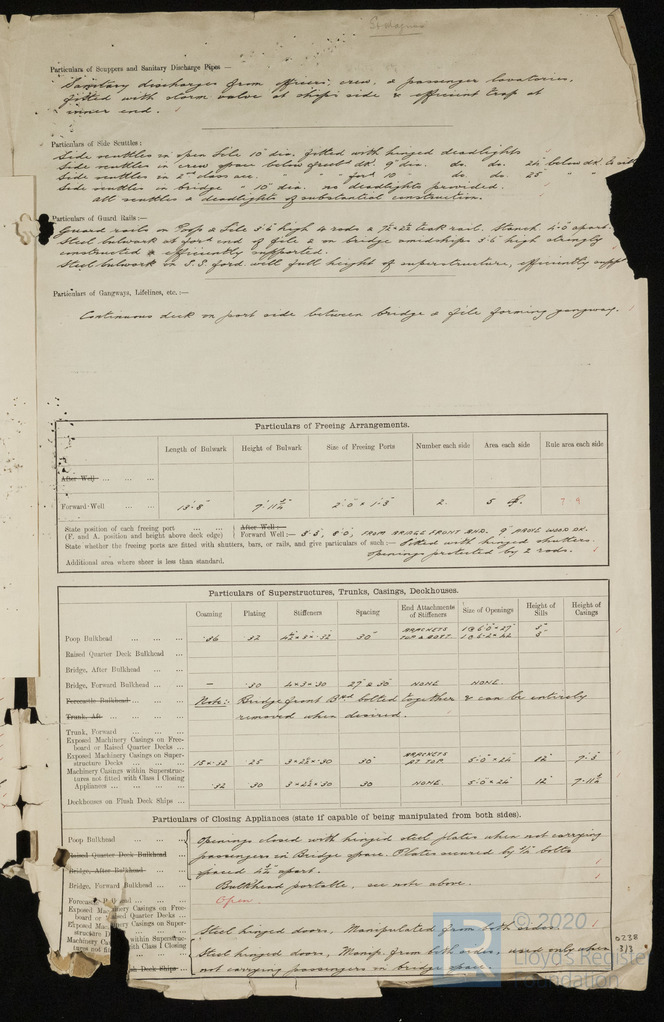 St Magnus
Particulars of Scuppers and Sanitary Discharge Pipes —
Sanitary discharges from officers, crew, & passenger lavatories,
fitted with storm valve at ships side & efficient trap at
inner end.
Particulars of Side Scuttles :
Side scuttles in open file 10" dia. fitted with hinged deadlights
Side scuttles in crew space below freeb'd dk. 9" dia. do. do. 24" below dk. to sill
Side scuttles in 2nd class acc. " " for'd 10" do. do. 25" " "
Side scuttles in bridge " 10" dia. no deadlights provided.
all scuttles & deadlights of substantial construction.
Particulars of Guard Rails :—
Guard rails on Poop & File 3'6 high 4 rods & teak rail. Stanch. 4'0 apart.
Steel bulwark at for'd end of file & on bridge amidships 3'6 high strongly
constructed & efficiently supported.
Steel bulwark in S.S. for'd. well full height of superstructure, efficiently supp
Particulars of Gangways, Lifelines, etc. :—
Continuous deck on port side between bridge & file forming gangway.
Particulars of Freeing Arrangements.
Length of Bulwark Height of Bulwark Size of Freeing Ports Number each side Area each side Rule area each side
After Well
Forward Well 2'0 × 1'3 2 5
State position of each freeing port After Well :—
(F. and A. position and height above deck edge) Forward Well :— FROM BRIDGE FRONT AND 9" ABOVE WOOD DK.
State whether the freeing ports are fitted with shutters, bars, or rails, and give particulars of such :— fitted with hinged shutters.
openings protected by 2 rods.
Additional area where sheer is less than standard.
Particulars of Superstructures, Trunks, Casings, Deckhouses.
Coaming Plating Stiffeners Spacing End Attachments of Stiffeners Size of Openings Height of Sills Height of Casings
Poop Bulkhead .36 .32 30" BRACKETS TOP & BOTT.
Raised Quarter Deck Bulkhead
Bridge, After Bulkhead
Bridge, Forward Bulkhead — .30 4×3×.30 27 & 30 NONE NONE
Forecastle Bulkhead Note:- Bridge front B'hd bolted together & can be entirely
Trunk, Aft removed when desired.
Trunk, Forward
Exposed Machinery Casings on Free-
board or Raised Quarter Decks
Exposed Machinery Casings on Super-
structure Decks 30" BRACKETS AT TOP. 5'0 × 24" 12"
Machinery Casings within Superstruc-
tures not fitted with Class I Closing
Appliances .32 30 30 NONE 5'0 × 24" 12"
Deckhouses on Flush Deck Ships
Particulars of Closing Appliances (state if capable of being manipulated from both sides).
Poop Bulkhead Openings closed with hinged steel plates when not carrying
Raised Quarter Deck Bulkhead passengers in Bridge space. Plates secured by bolts
Bridge, After Bulkhead spaced apart.
Bridge, Forward Bulkhead Bulkhead portable, see note above.
Open
Exposed Machinery Casings on Free-
board or Quarter Decks
Exposed Machinery Casings on Super-
structure Steel hinged doors, Manipulated from both sides.
within Superstruc-
Class I Closing Steel hinged doors, Manip. from both sides, used only when
Deck Ships not carrying passengers in bridge space.
© 2020
Lloyd's Register
Foundation
0238
3/3